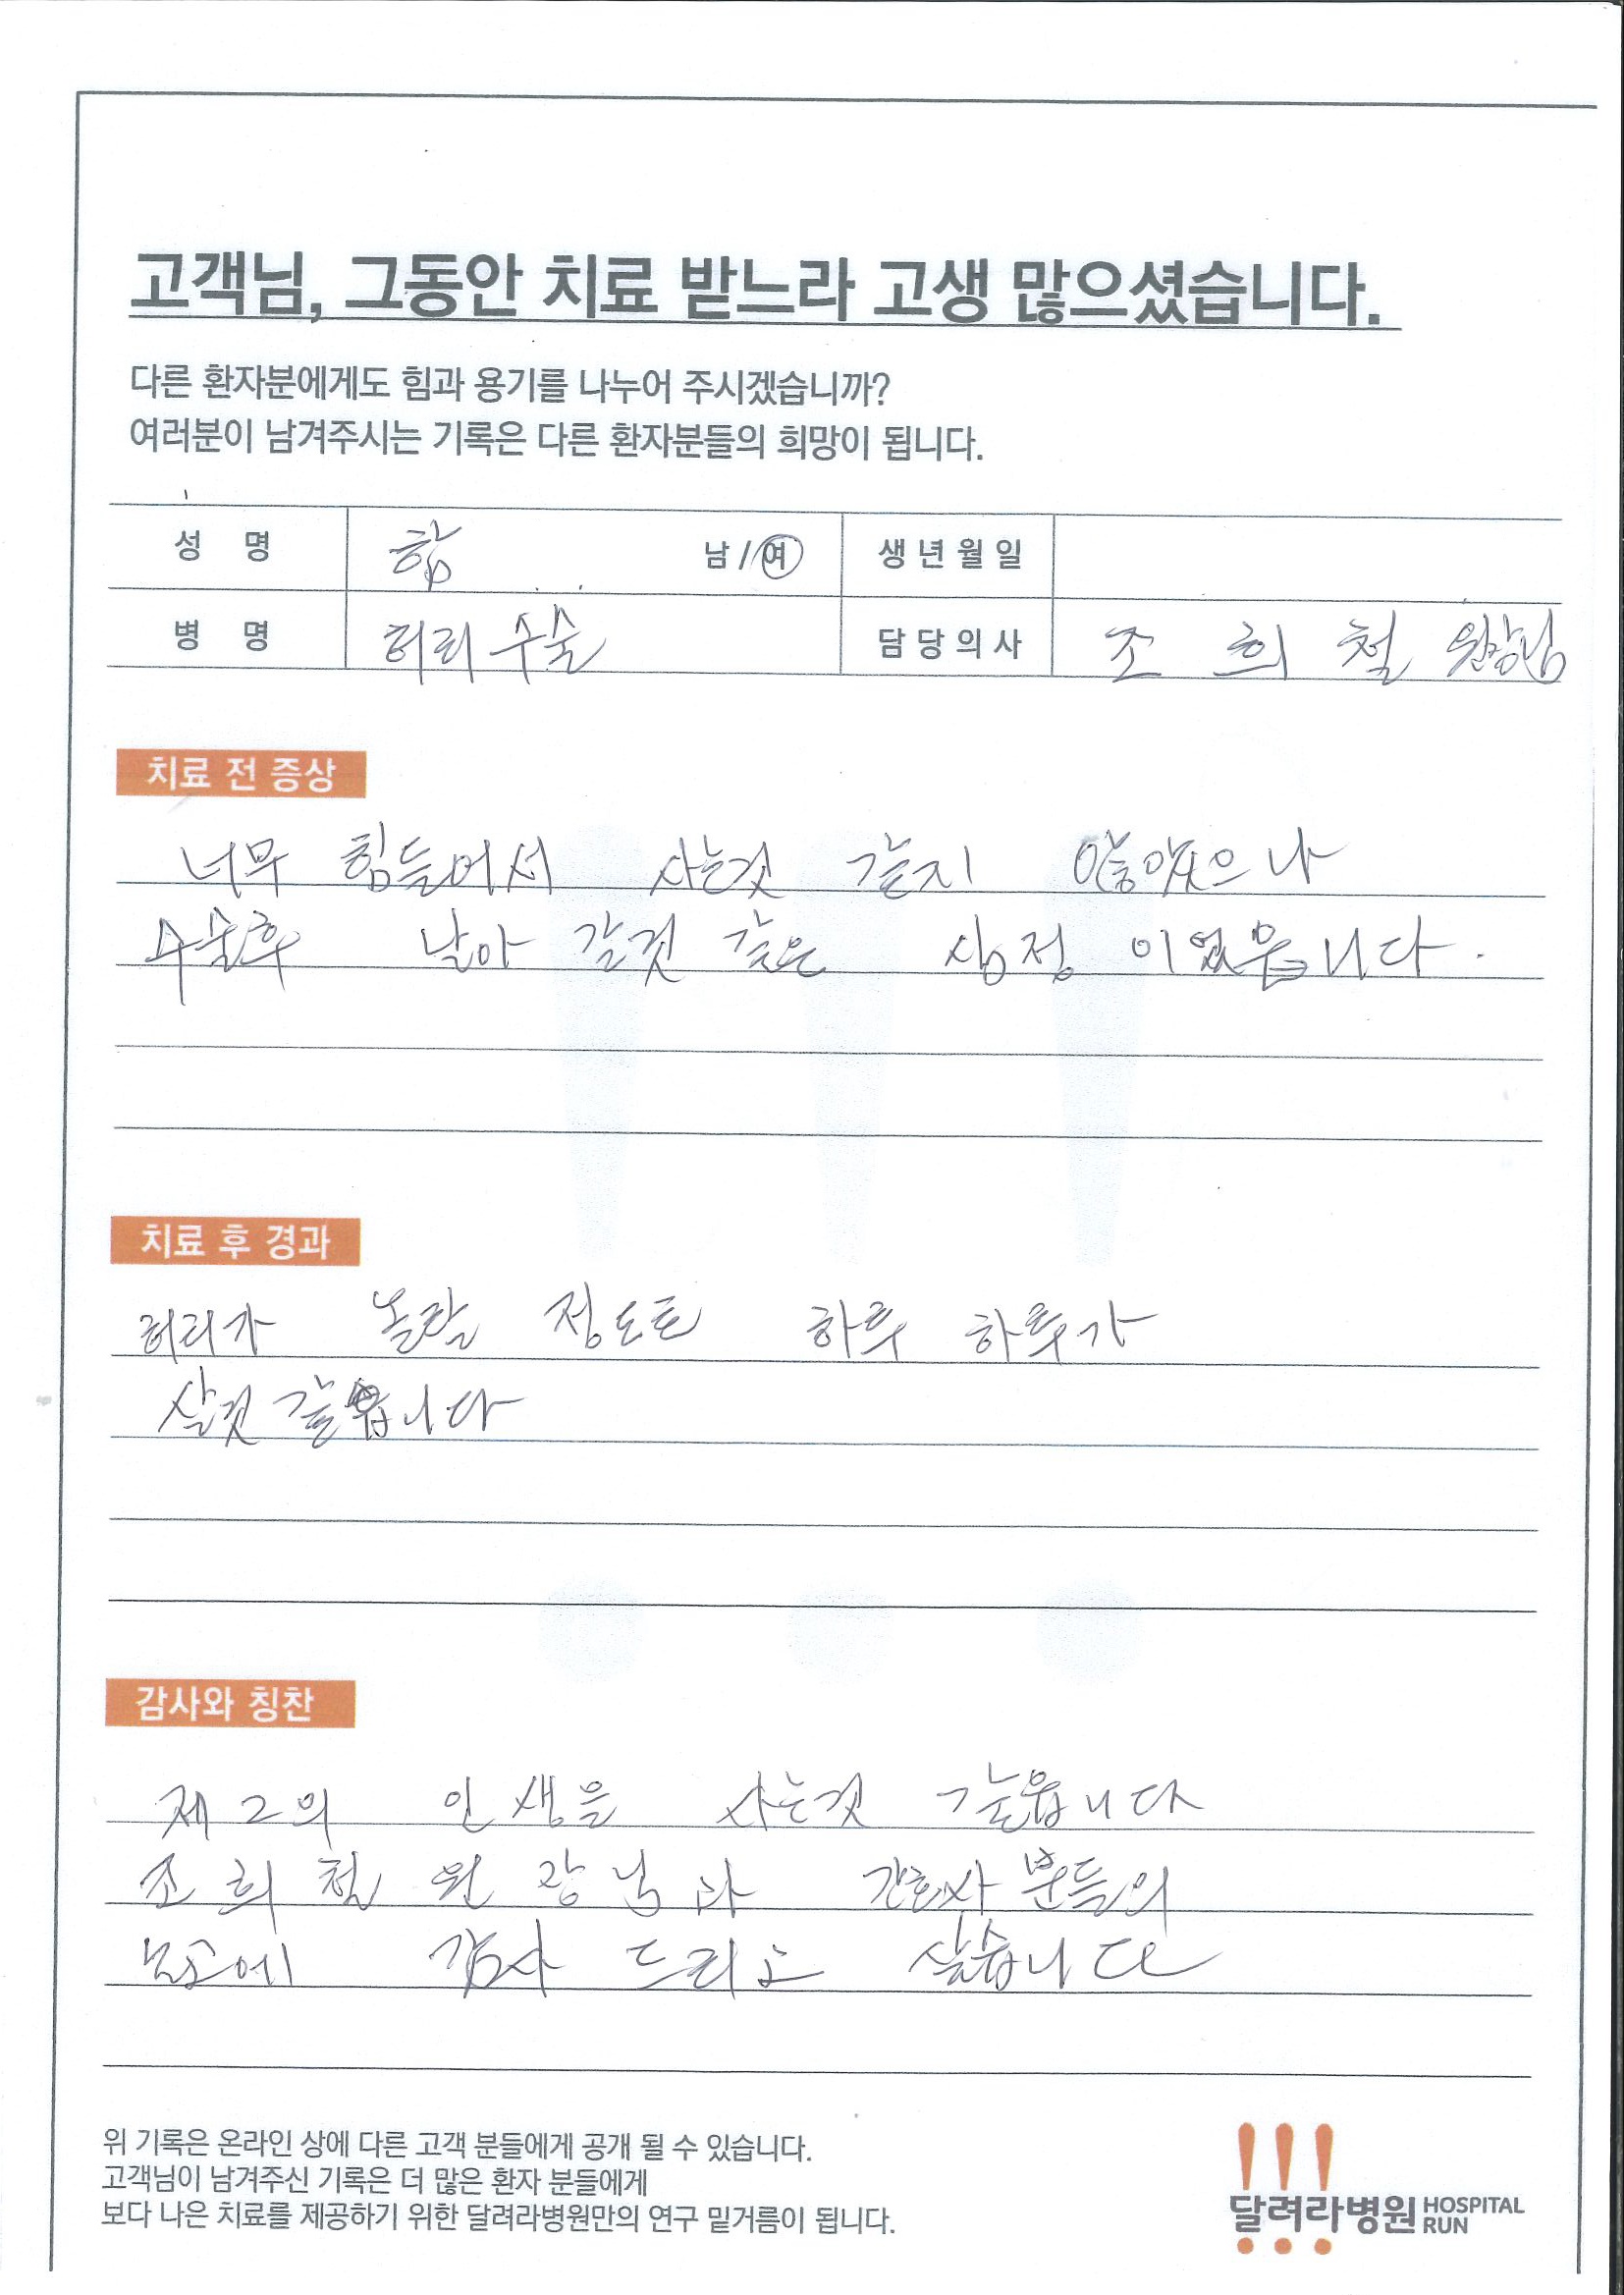 고객님, 그동안 치료 받느라 고생 많으셨습니다.
다른 환자분에게도 힘과 용기를 나누어 주시겠습니까?
여러분이 남겨주시는 기록은 다른 환자분들의 희망이 됩니다.
성 명 함 남/여 생년월일
병 명 허리수술 담당의사 조 희 철 원장님
치료 전 증상
너무 힘들어서 사는것 같지 않았으나
수술후 날아 갈것 같은 심정 이었읍니다.
치료 후 경과
허리가 놀랄 정도로 하루 하루가
살것 같읍니다
감사와 칭찬
제2의 인생을 사는것 같읍니다
조희철 원장님과 간호사 분들의
노고에 감사 드리고 싶습니다
위 기록은 온라인 상에 다른 고객 분들에게 공개 될 수 있습니다.
고객님이 남겨주신 기록은 더 많은 환자 분들에게
보다 나은 치료를 제공하기 위한 달려라병원만의 연구 밑거름이 됩니다.
달려라병원 HOSPITAL RUN